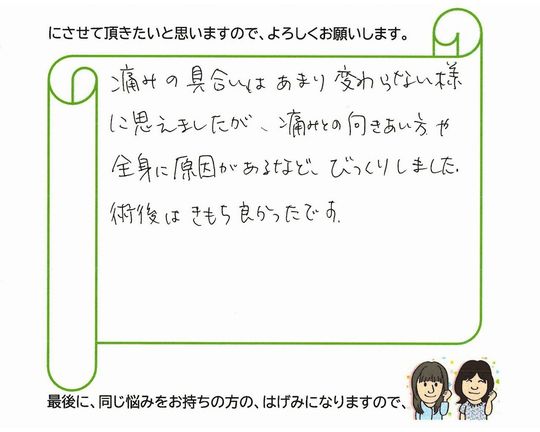 にさせて頂きたいと思いますので、よろしくお願いします。
痛みの具合いはあまり変わらない様
に思えましたが、痛みとの向きあい方や
全身に原因があるなど、びっくりしました。
術後はきもち良かったです。
最後に、同じ悩みをお持ちの方の、はげみになりますので、